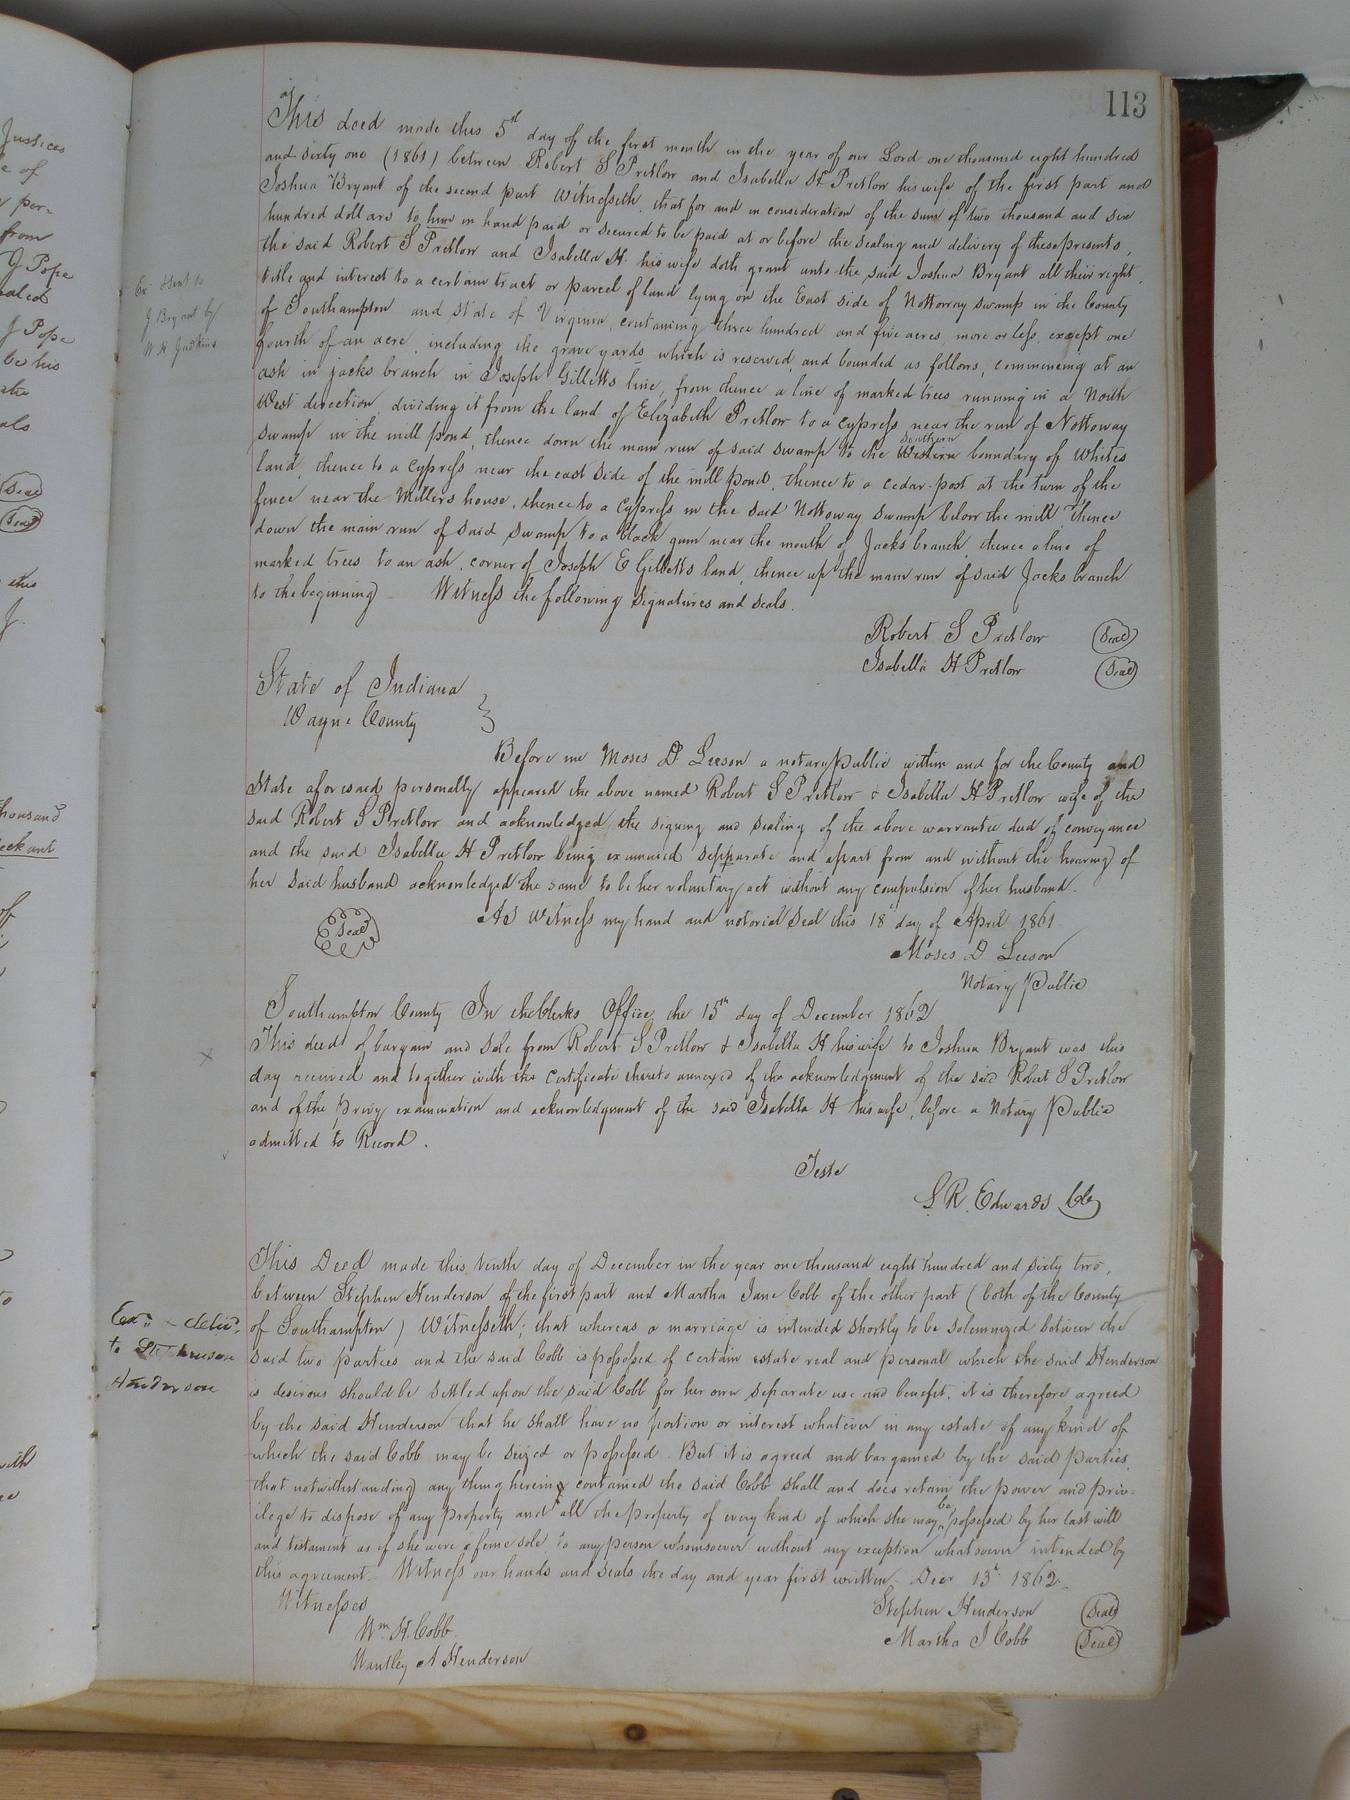 113
This deed made this 5th day of the first month in the year of our Lord one thousand eight hundred
and sixty one (1861) between Robert S Pretlow and Isabella H Pretlow his wife of the first part and
Joshua Bryant of the second part Witnesseth, that for and in consideration of the sum of two thousand and six
hundred dollars to him in hand paid or secured to be paid at or before the sealing and delivery of these presents,
the said Robert S Pretlow and Isabella H. his wife doth grant unto the said Joshua Bryant all their right,
title and interest to a certain tract or parcel of land lying on the East side of Nottoway swamp in the County
of Southampton and State of Virginia, containing three hundred and five acres, more or less, except one
fourth of an acre, including the grave yards which is reserved, and bounded as follows, commencing at an
ash in jacks branch in Joseph Gilletts line, from thence a line of marked trees running in a North
West direction, dividing it from the land of Elizabeth Pretlow to a cypress near the run of Nottoway
swamp in the mill pond, thence down the main run of said swamp to the Western Southern boundary of Whites
land, thence to a cypress near the east side of the mill pond, thence to a cedar post at the turn of the
fence near the Millers house, thence to a cypress in the said Nottoway swamp below the mill, thence
down the main run of said swamp to a black gum near the mouth of Jacks branch, thence a line of
marked trees to an ash, corner of Joseph E Gilletts land, thence up the main run of said Jacks branch
to the beginning Witness the following signatures and seals.
Robert S Pretlow (Seal)
Isabella H Pretlow (Seal)
Ex Sent to
J Bryant by
W H Judkins
State of Indiana
Wayne County
Before me Moses D Leeson a notary Public within and for the County and
State aforesaid personally appeared the above named Robert S Pretlow & Isabella H Pretlow wife of the
said Robert S Pretlow and acknowledged the signing and sealing of the above warrantee deed of conveyance
and the said Isabella H Pretlow being examined sepparate and apart from and without the hearing of
her said husband acknowledged the same to be her voluntary act without any compulsion of her husband.
As Witness my hand and notorial Seal this 18 day of April 1861
Seal
Moses D Leeson
Notary Public
Southampton County In the Clerks Office, the 15th day of December 1862
This deed of bargain and sale from Robert S Pretlow & Isabella H his wife to Joshua Bryant was this
day received and together with the certificate thereto annexed of the acknowledgment of the said Robert S Pretlow
and of the privy examination and acknowledgment of the said Isabella H his wife, before a Notary Public
admitted to Record.
Teste
L. R. Edwards Clk
This Deed made this tenth day of December in the year one thousand eight hundred and sixty two,
between Stephen Henderson of the first part and Martha Jane Cobb of the other part (both of the County
of Southampton) Witnesseth; that whereas a marriage is intended shortly to be solemnized between the
said two parties and the said Cobb is possessed of certain estate real and personal which the said Henderson
is desirous should be settled upon the said Cobb for her own separate use and benefit, it is therefore agreed
by the said Henderson that he shall have no portion or interest whatever in any estate of any kind of
which the said Cobb may be seized or possessed. But it is agreed and bargained by the said parties,
that notwithstanding any thing herein contained the said Cobb shall and does retain the power and priv-
ilege to dispose of any property and all the property of every kind of which she may be possessed by her last will
and testament as if she were a feme sole to any person whomsoever without any exception whatsoever intended by
this agreement. Witness our hands and seals the day and year first written. Decr 13th 1862.
Exd & delivd
to Stephenson
Henderson
Witnesses
Stephen Henderson (Seal)
Wm H. Cobb
Martha J Cobb (Seal)
Wantley A Henderson